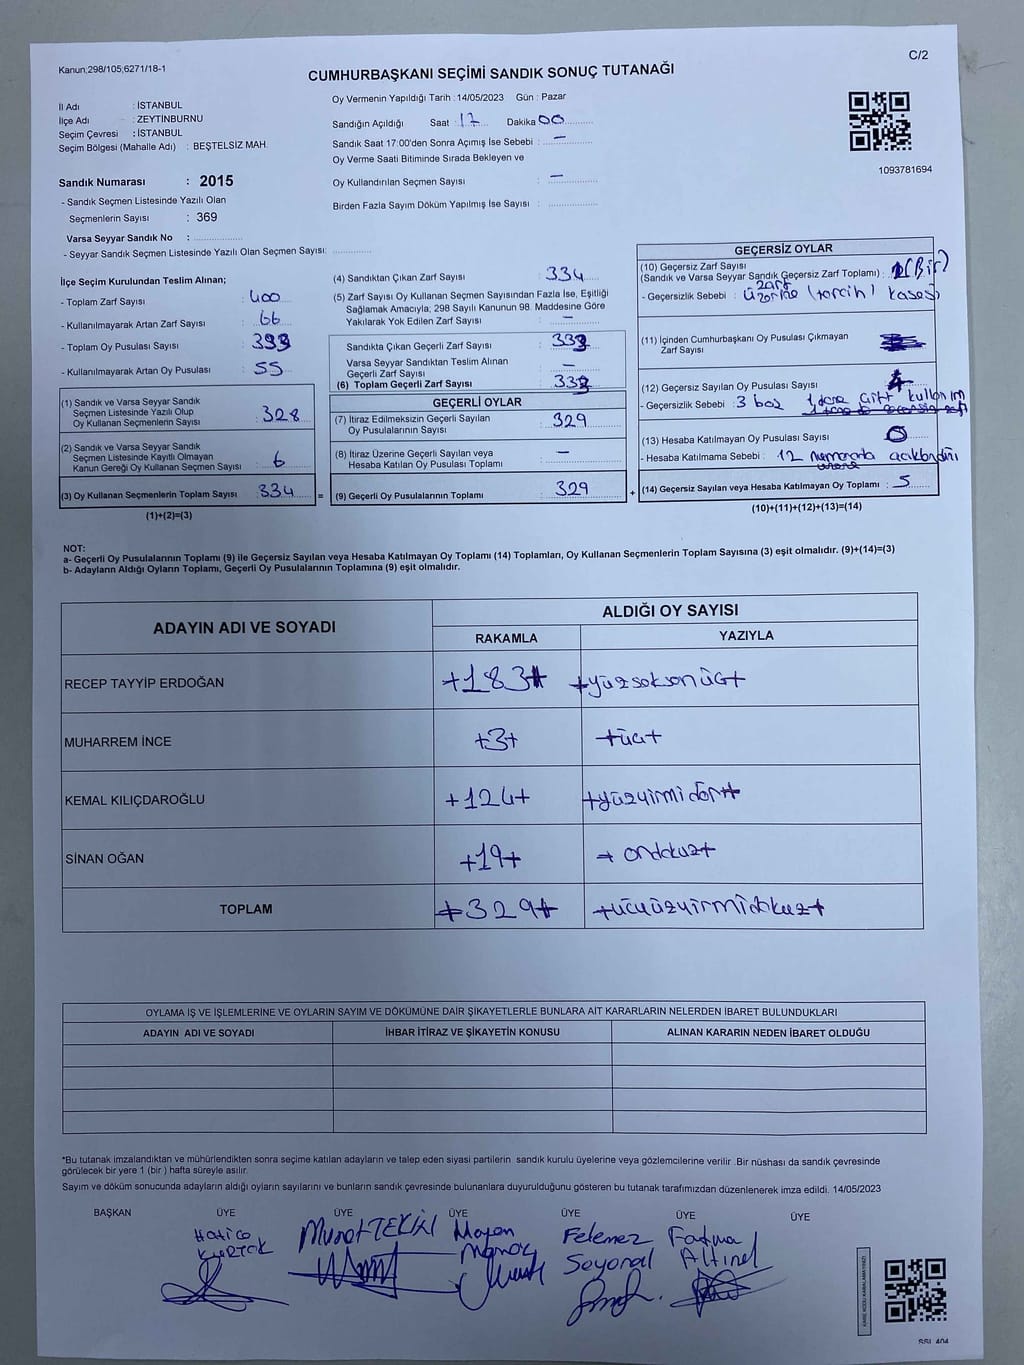 Kanun;298/105;6271/18-1
C/2
CUMHURBAŞKANI SEÇİMİ SANDIK SONUÇ TUTANAĞI
İl Adı : İSTANBUL
İlçe Adı : ZEYTİNBURNU
Seçim Çevresi : İSTANBUL
Seçim Bölgesi (Mahalle Adı) : BEŞTELSİZ MAH.
Oy Vermenin Yapıldığı Tarih : 14/05/2023 Gün : Pazar
Sandığın Açıldığı Saat : 17 Dakika 00
Sandık Saat 17:00'den Sonra Açımış İse Sebebi : —
Oy Verme Saati Bitiminde Sırada Bekleyen ve
Oy Kullandırılan Seçmen Sayısı : —
Birden Fazla Sayım Döküm Yapılmış İse Sayısı :
1093781694
Sandık Numarası : 2015
- Sandık Seçmen Listesinde Yazılı Olan
Seçmenlerin Sayısı : 369
Varsa Seyyar Sandık No :
- Seyyar Sandık Seçmen Listesinde Yazılı Olan Seçmen Sayısı:
İlçe Seçim Kurulundan Teslim Alınan;
- Toplam Zarf Sayısı : 400
- Kullanılmayarak Artan Zarf Sayısı : 66
- Toplam Oy Pusulası Sayısı :
- Kullanılmayarak Artan Oy Pusulası : 55
(1) Sandık ve Varsa Seyyar Sandık
Seçmen Listesinde Yazılı Olup
Oy Kullanan Seçmenlerin Sayısı : 328
(2) Sandık ve Varsa Seyyar Sandık
Seçmen Listesinde Kayıtlı Olmayan
Kanun Gereği Oy Kullanan Seçmen Sayısı : 6
(3) Oy Kullanan Seçmenlerin Toplam Sayısı : 334 =
(1)+(2)=(3)
(4) Sandıktan Çıkan Zarf Sayısı : 334
(5) Zarf Sayısı Oy Kullanan Seçmen Sayısından Fazla İse, Eşitliği
Sağlamak Amacıyla; 298 Sayılı Kanunun 98. Maddesine Göre
Yakılarak Yok Edilen Zarf Sayısı : —
Sandıkta Çıkan Geçerli Zarf Sayısı : 333
Varsa Seyyar Sandıktan Teslim Alınan
Geçerli Zarf Sayısı : —
(6) Toplam Geçerli Zarf Sayısı : 333
GEÇERLİ OYLAR
(7) İtiraz Edilmeksizin Geçerli Sayılan
Oy Pusulalarının Sayısı : 329
(8) İtiraz Üzerine Geçerli Sayılan veya
Hesaba Katılan Oy Pusulası Toplamı : —
(9) Geçerli Oy Pusulalarının Toplamı : 329 +
GEÇERSİZ OYLAR
(10) Geçersiz Zarf Sayısı
(Sandık ve Varsa Seyyar Sandık Geçersiz Zarf Toplamı) : 1 (Bir)
- Geçersizlik Sebebi : zarf üzerine (tercih) kaşesi
(11) İçinden Cumhurbaşkanı Oy Pusulası Çıkmayan
Zarf Sayısı
(12) Geçersiz Sayılan Oy Pusulası Sayısı : 4
- Geçersizlik Sebebi : 3 boş 1 tane çift kullanım
(13) Hesaba Katılmayan Oy Pusulası Sayısı : 0
- Hesaba Katılmama Sebebi : 12 numarada açıklandı
(14) Geçersiz Sayılan veya Hesaba Katılmayan Oy Toplamı : 5
(10)+(11)+(12)+(13)=(14)
NOT:
a- Geçerli Oy Pusulalarının Toplamı (9) ile Geçersiz Sayılan veya Hesaba Katılmayan Oy Toplamı (14) Toplamları, Oy Kullanan Seçmenlerin Toplam Sayısına (3) eşit olmalıdır. (9)+(14)=(3)
b- Adayların Aldığı Oyların Toplamı, Geçerli Oy Pusulalarının Toplamına (9) eşit olmalıdır.
ADAYIN ADI VE SOYADI
ALDIĞI OY SAYISI
RAKAMLA YAZIYLA
RECEP TAYYİP ERDOĞAN +183+ +yüzseksenüç+
MUHARREM İNCE +3+ +üç+
KEMAL KILIÇDAROĞLU +124+ +yüzyirmidört+
SİNAN OĞAN +19+ +ondokuz+
TOPLAM +329+ +üçyüzyirmidokuz+
OYLAMA İŞ VE İŞLEMLERİNE VE OYLARIN SAYIM VE DÖKÜMÜNE DAİR ŞİKAYETLERLE BUNLARA AİT KARARLARIN NELERDEN İBARET BULUNDUKLARI
ADAYIN ADI VE SOYADI İHBAR İTİRAZ VE ŞİKAYETİN KONUSU ALINAN KARARIN NEDEN İBARET OLDUĞU
*Bu tutanak imzalandıktan ve mühürlendikten sonra seçime katılan adayların ve talep eden siyasi partilerin sandık kurulu üyelerine veya gözlemcilerine verilir .Bir nüshası da sandık çevresinde
görülecek bir yere 1 (bir ) hafta süreyle asılır.
Sayım ve döküm sonucunda adayların aldığı oyların sayılarını ve bunların sandık çevresinde bulunanlara duyurulduğunu gösteren bu tutanak tarafımızdan düzenlenerek imza edildi. 14/05/2023
BAŞKAN ÜYE ÜYE ÜYE ÜYE ÜYE ÜYE
Hatice Murat TEKİN Felemez Fatma
Altınel
KARE KODU KARALAMAYINIZ!